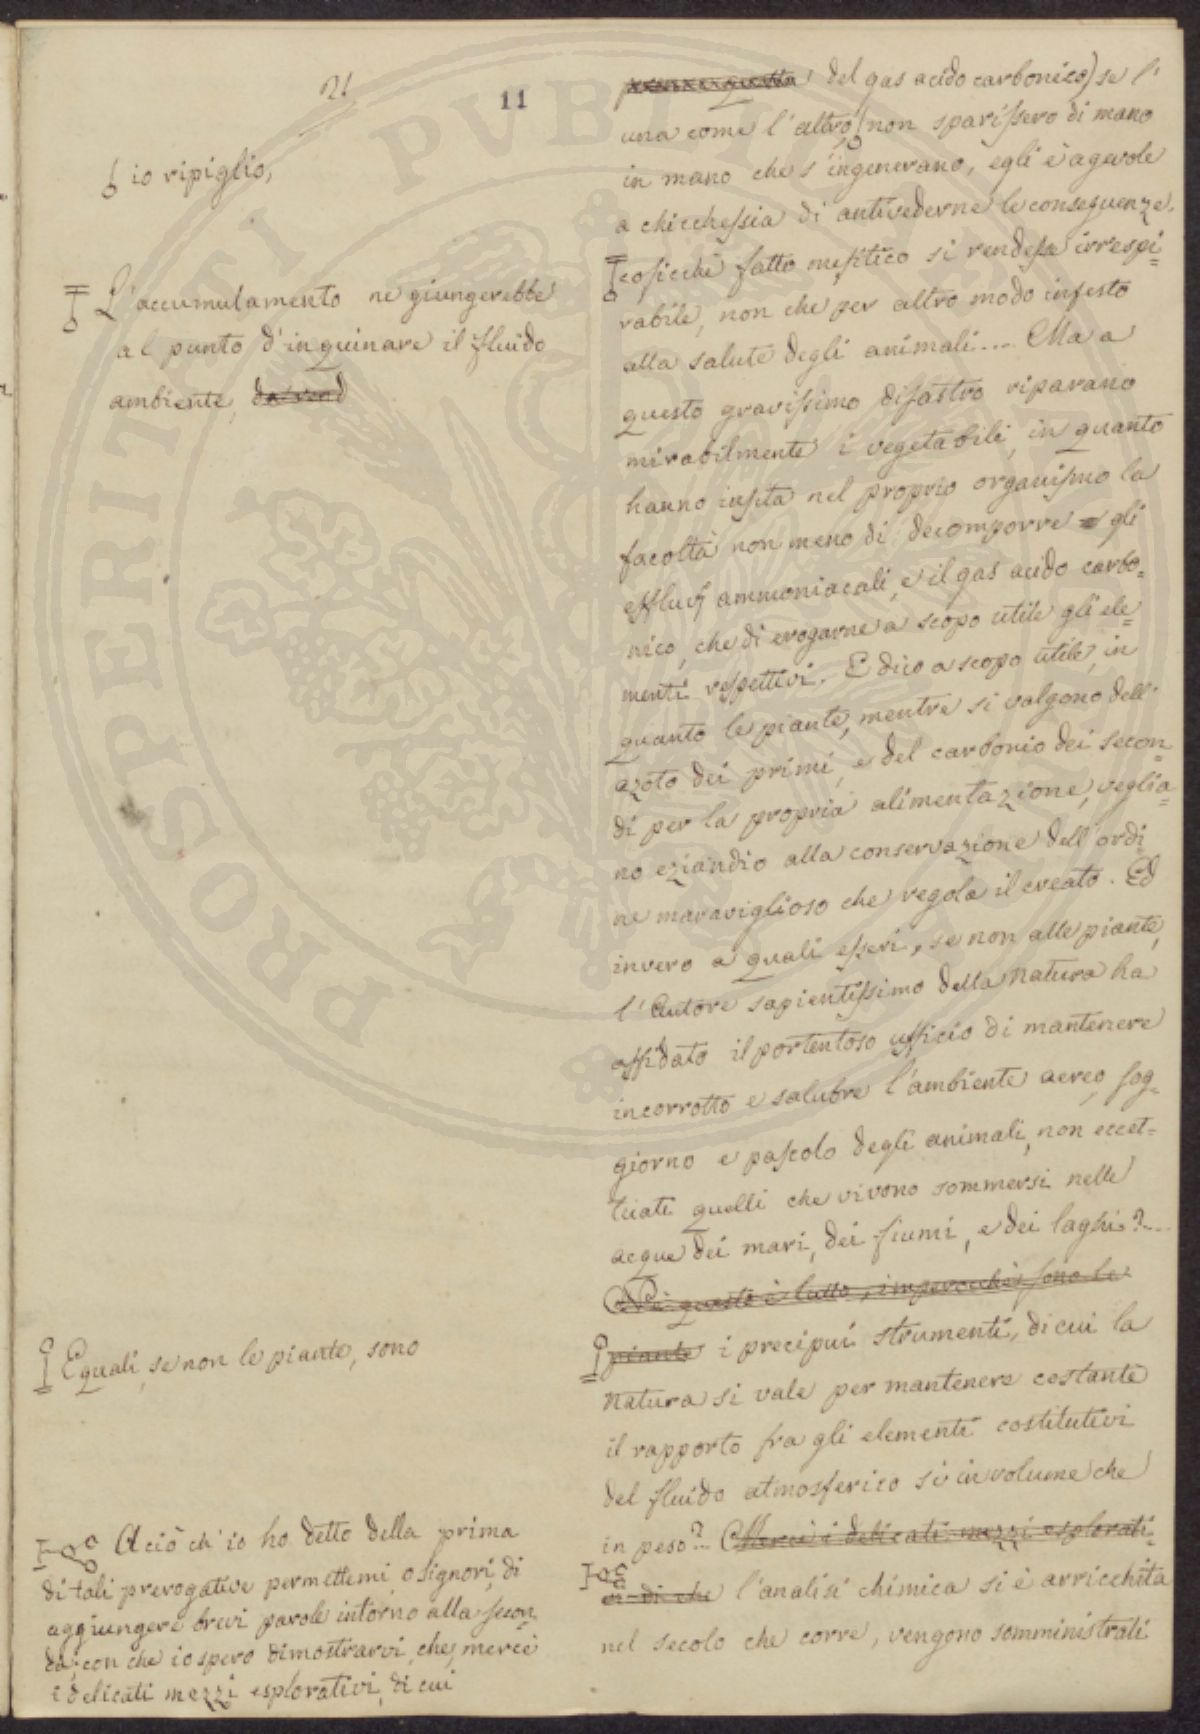 21
11
io ripiglio,
L'accumulamento ne giungerebbe
al punto d'inquinare il fluido
ambiente, da rend
questa del gas acido carbonico) se l'
una come l'altro, non sparissero di mano
in mano che s'ingenerano, egli è agevole
a chicchessia di antivederne le conseguenze.
cosicchè fatto mefitico si rendesse irrespi=
rabile, non che per altro modo infesto
alla salute degli animali.... Ma a
questo gravissimo disastro riparano
mirabilmente i vegetabili, in quanto
hanno insita nel proprio organismo la
facoltà non meno di decomporre gli
effluvj ammoniacali, e il gas acido carbo=
nico, che di erogarne a scopo utile gli ele=
menti respettivi. E dico a scopo utile, in
quanto le piante, mentre si valgono dell'
azoto dei primi, e del carbonio dei secon=
di per la propria alimentazione, veglia=
no eziandio alla conservazione dell'ordi=
ne maraviglioso che regola il creato. Ed
invero a quali esseri, se non alle piante,
l'Autore sapientissimo della natura ha
affidato il portentoso ufficio di mantenere
incorrotto e salubre l'ambiente aereo, sog=
giorno e pascolo degli animali, non eccet=
tuati quelli che vivono sommersi nelle
acque dei mari, dei fiumi, e dei laghi?....
Nè questo è tutto, imperocchè sono le
piante i precipui strumenti, di cui la
natura si vale per mantenere costante
il rapporto fra gli elementi costitutivi
del fluido atmosferico sì in volume che
in peso?.. Mercè i delicati mezzi esplorati=
vi di che l'analisi chimica si è arricchita
nel secolo che corre, vengono somministrati
E quali, se non le piante, sono
A ciò ch'io ho detto della prima
di tali prerogative permettemi, o signori, di
aggiungere brevi parole intorno alla secon=
da; con che io spero dimostrarvi, che, mercè
i delicati mezzi esplorativi, di cui
PROSPERITATI PVBLICAE